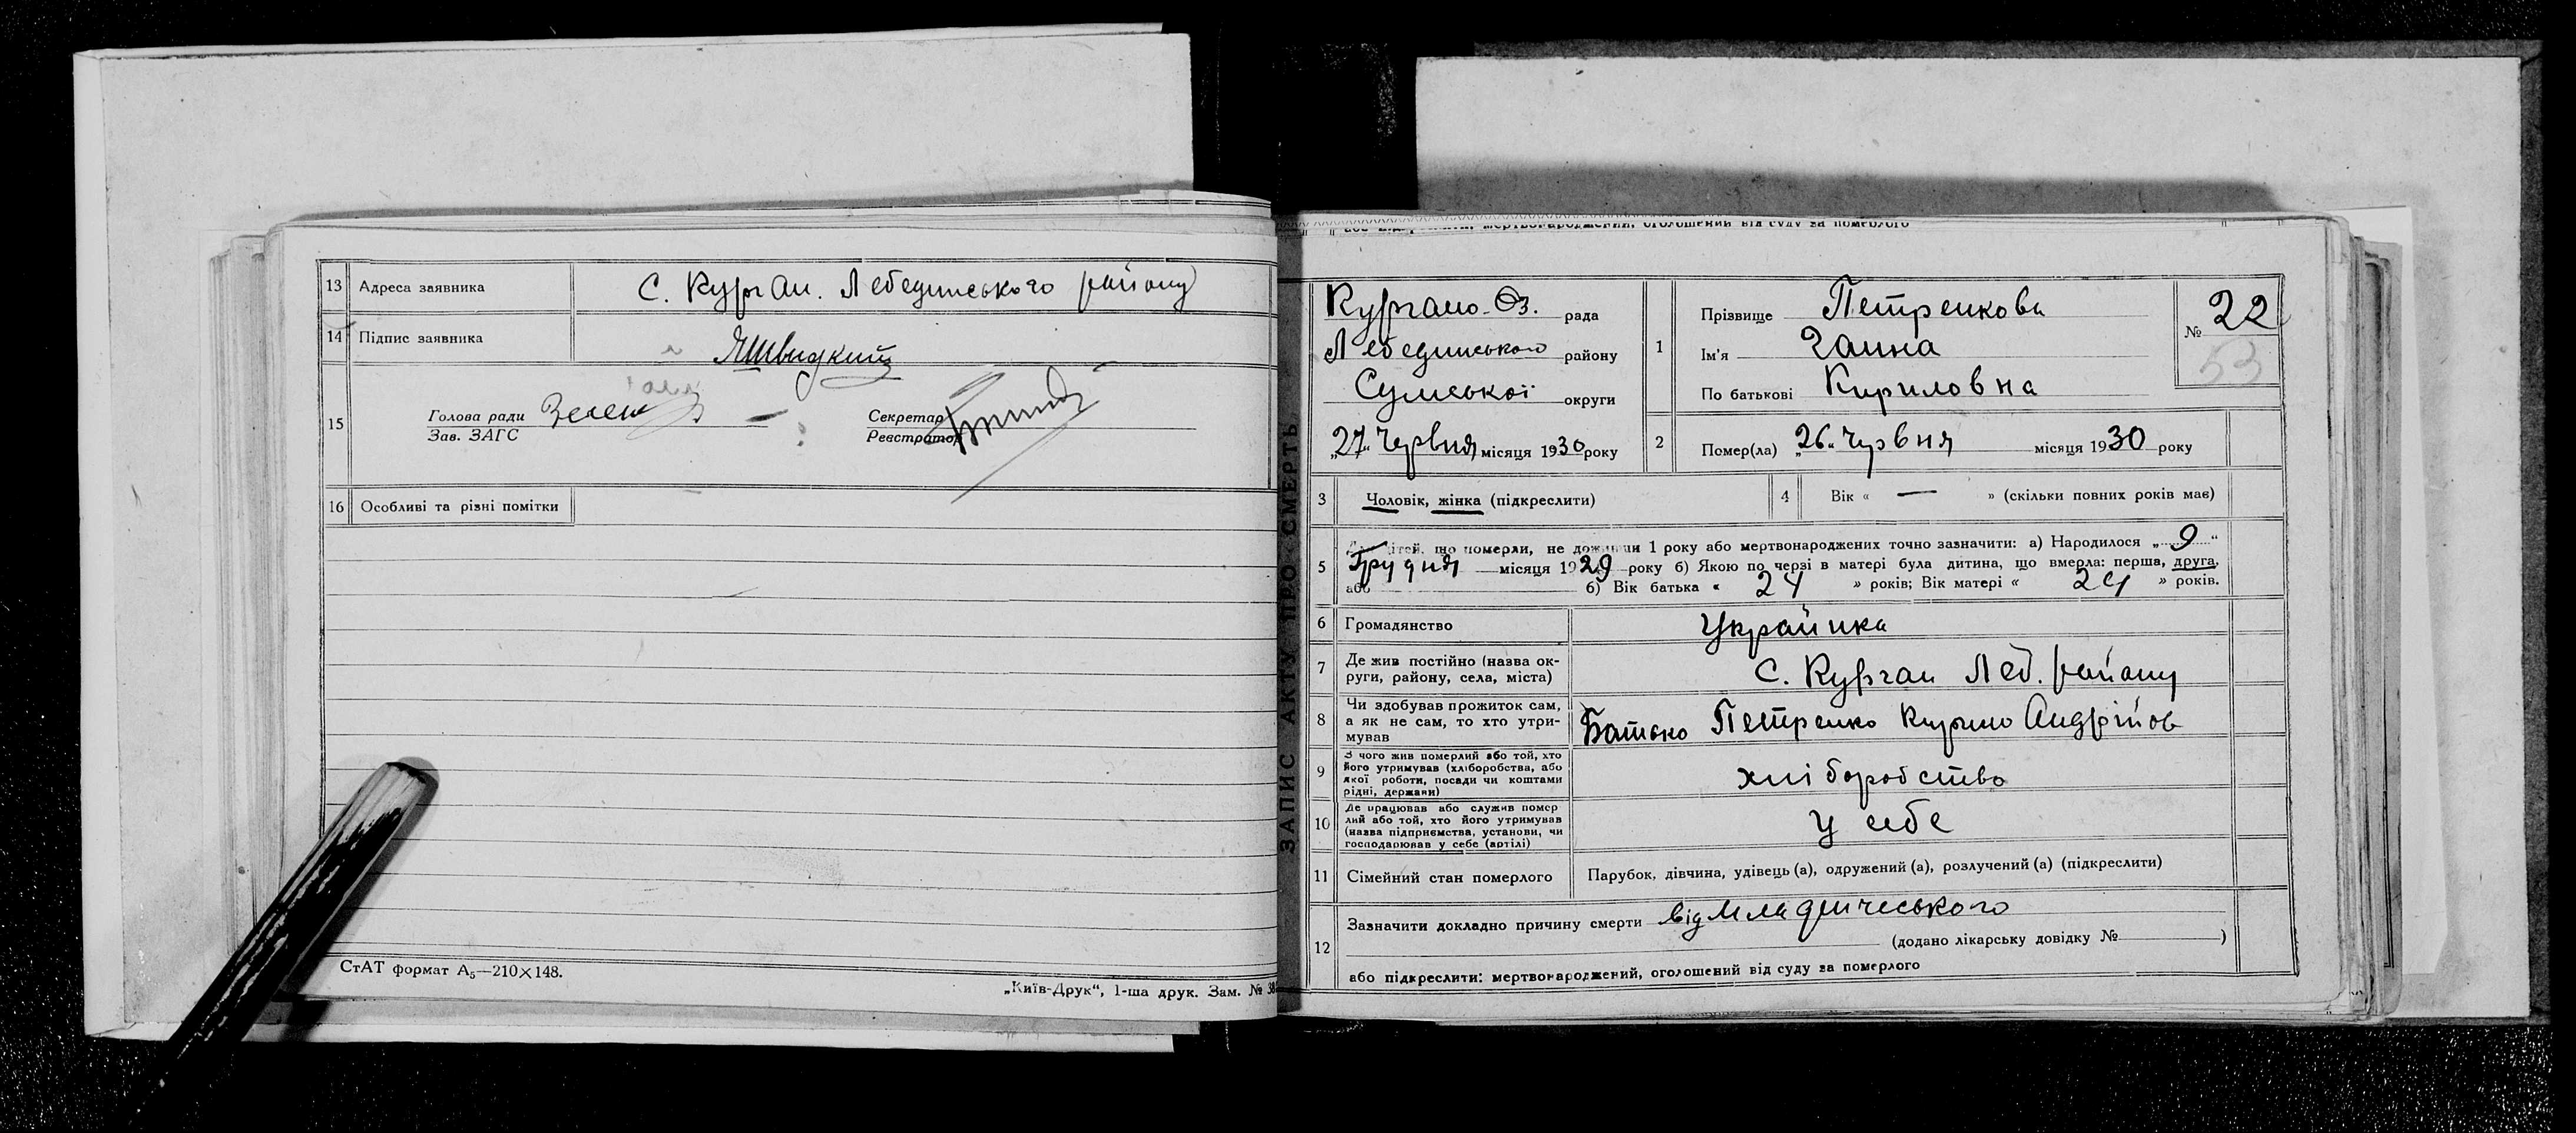 13 Адреса заявника С. Курган. Лебединського району
14 Підпис заявника ЯШвидкий
15 Голова ради Зелен
Зав. ЗАГС
Секретар
Реєстратор
16 Особливі та різні помітки
СтАТ формат А₅—210×148.
„Київ-Друк“, 1-ша друк. Зам. № 38
ЗАПИС АКТУ ПРО СМЕРТЬ
мертвонароджений, оголошений від суду за померлого
Кургано-Оз. рада
Лебединського району
Сумської округи
„27“ Червня місяця 1930 року
1 Прізвище Петренкова
Ім'я Ганна
По батькові Кириловна
№ 22
53
2 Помер(ла) „26“ Червня місяця 1930 року
3 Чоловік, жінка (підкреслити)
4 Вік « — » (скільки повних років має)
5 дітей, що померли, не доживши 1 року або мертвонароджених точно зазначити: а) Народилося „9“
Грудня місяця 1929 року б) Якою по черзі в матері була дитина, що вмерла: перша, друга,
або б) Вік батька « 24 » років; Вік матері « 24 » років.
6 Громадянство Українка
7 Де жив постійно (назва ок-
руги, району, села, міста) С. Курган Леб. району
8 Чи здобував прожиток сам,
а як не сам, то хто утри-
мував Батько Петренко Кирило Андрійов
9 З чого жив померлий або той, хто
його утримував (хліборобства, або
якої роботи, посади чи коштами
рідні, держави) хліборобство
10 Де працював або служив помер
лий або той, хто його утримував
(назва підприємства, установи, чи
господарював у себе (артілі) у себе
11 Сімейний стан померлого Парубок, дівчина, удівець (а), одружений (а), розлучений (а) (підкреслити)
12 Зазначити докладно причину смерти від Младенчеського
(додано лікарську довідку № )
або підкреслити: мертвонароджений, оголошений від суду за померлого